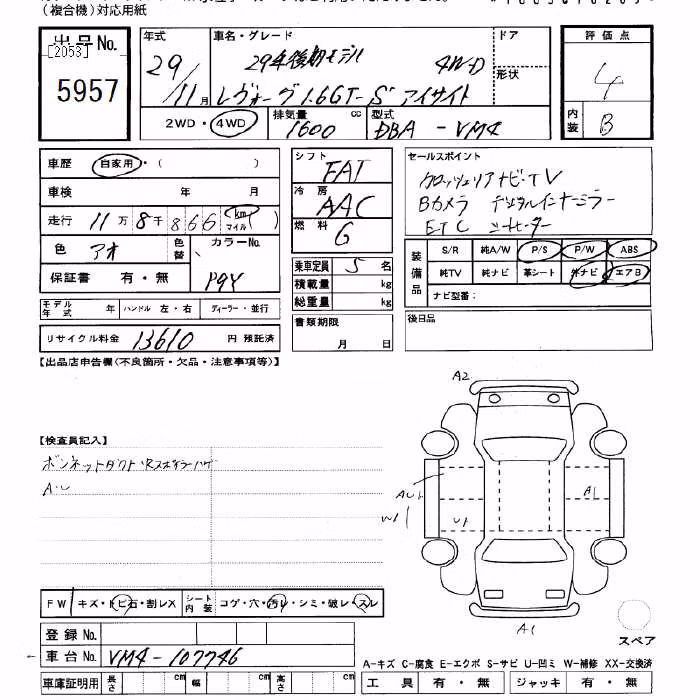 (複合機)対応用紙
出品No.
[2053]
5957
年式
29/11月
車名・グレード
29年後期モデル 4WD
レヴォーグ1.6GT-S アイサイト
ドア
形状
2WD・4WD
排気量
1600 cc
型式
DBA-VM4
評価点
4
内装
B
車歴 自家用・( )
車検 年 月
走行 11万8千866 (km マイル)
色 アオ
色替
カラーNo.
保証書 有・無
モデル年式 年
ハンドル 左・右
ディーラー・並行
リサイクル料金 13610 円 預託済
シフト
FAT
冷房
AAC
燃料
G
乗車定員 5 名
積載量 kg
総重量 kg
書類期限
月 日
セールスポイント
Bカメラ デジタルインナーミラー
ETC シートヒーター
装備品
S/R 純A/W P/S P/W ABS
純TV 純ナビ 革シート 外ナビ エアB
ナビ型番:
後日品
【出品店申告欄(不良箇所・欠品・注意事項等)】
【検査員記入】
A2
AU1
W1
U1
A1
A1
FW キズ・トビ石・割レX
シート内装 コゲ・穴・汚レ・シミ・破レ・スレ
登録No.
車台No. VM4-107746
車庫証明用 長さ cm 幅 cm 高さ cm
スペア
A-キズ C-腐食 E-エクボ S-サビ U-凹ミ W-補修 XX-交換済
工具 有・無 ジャッキ 有・無